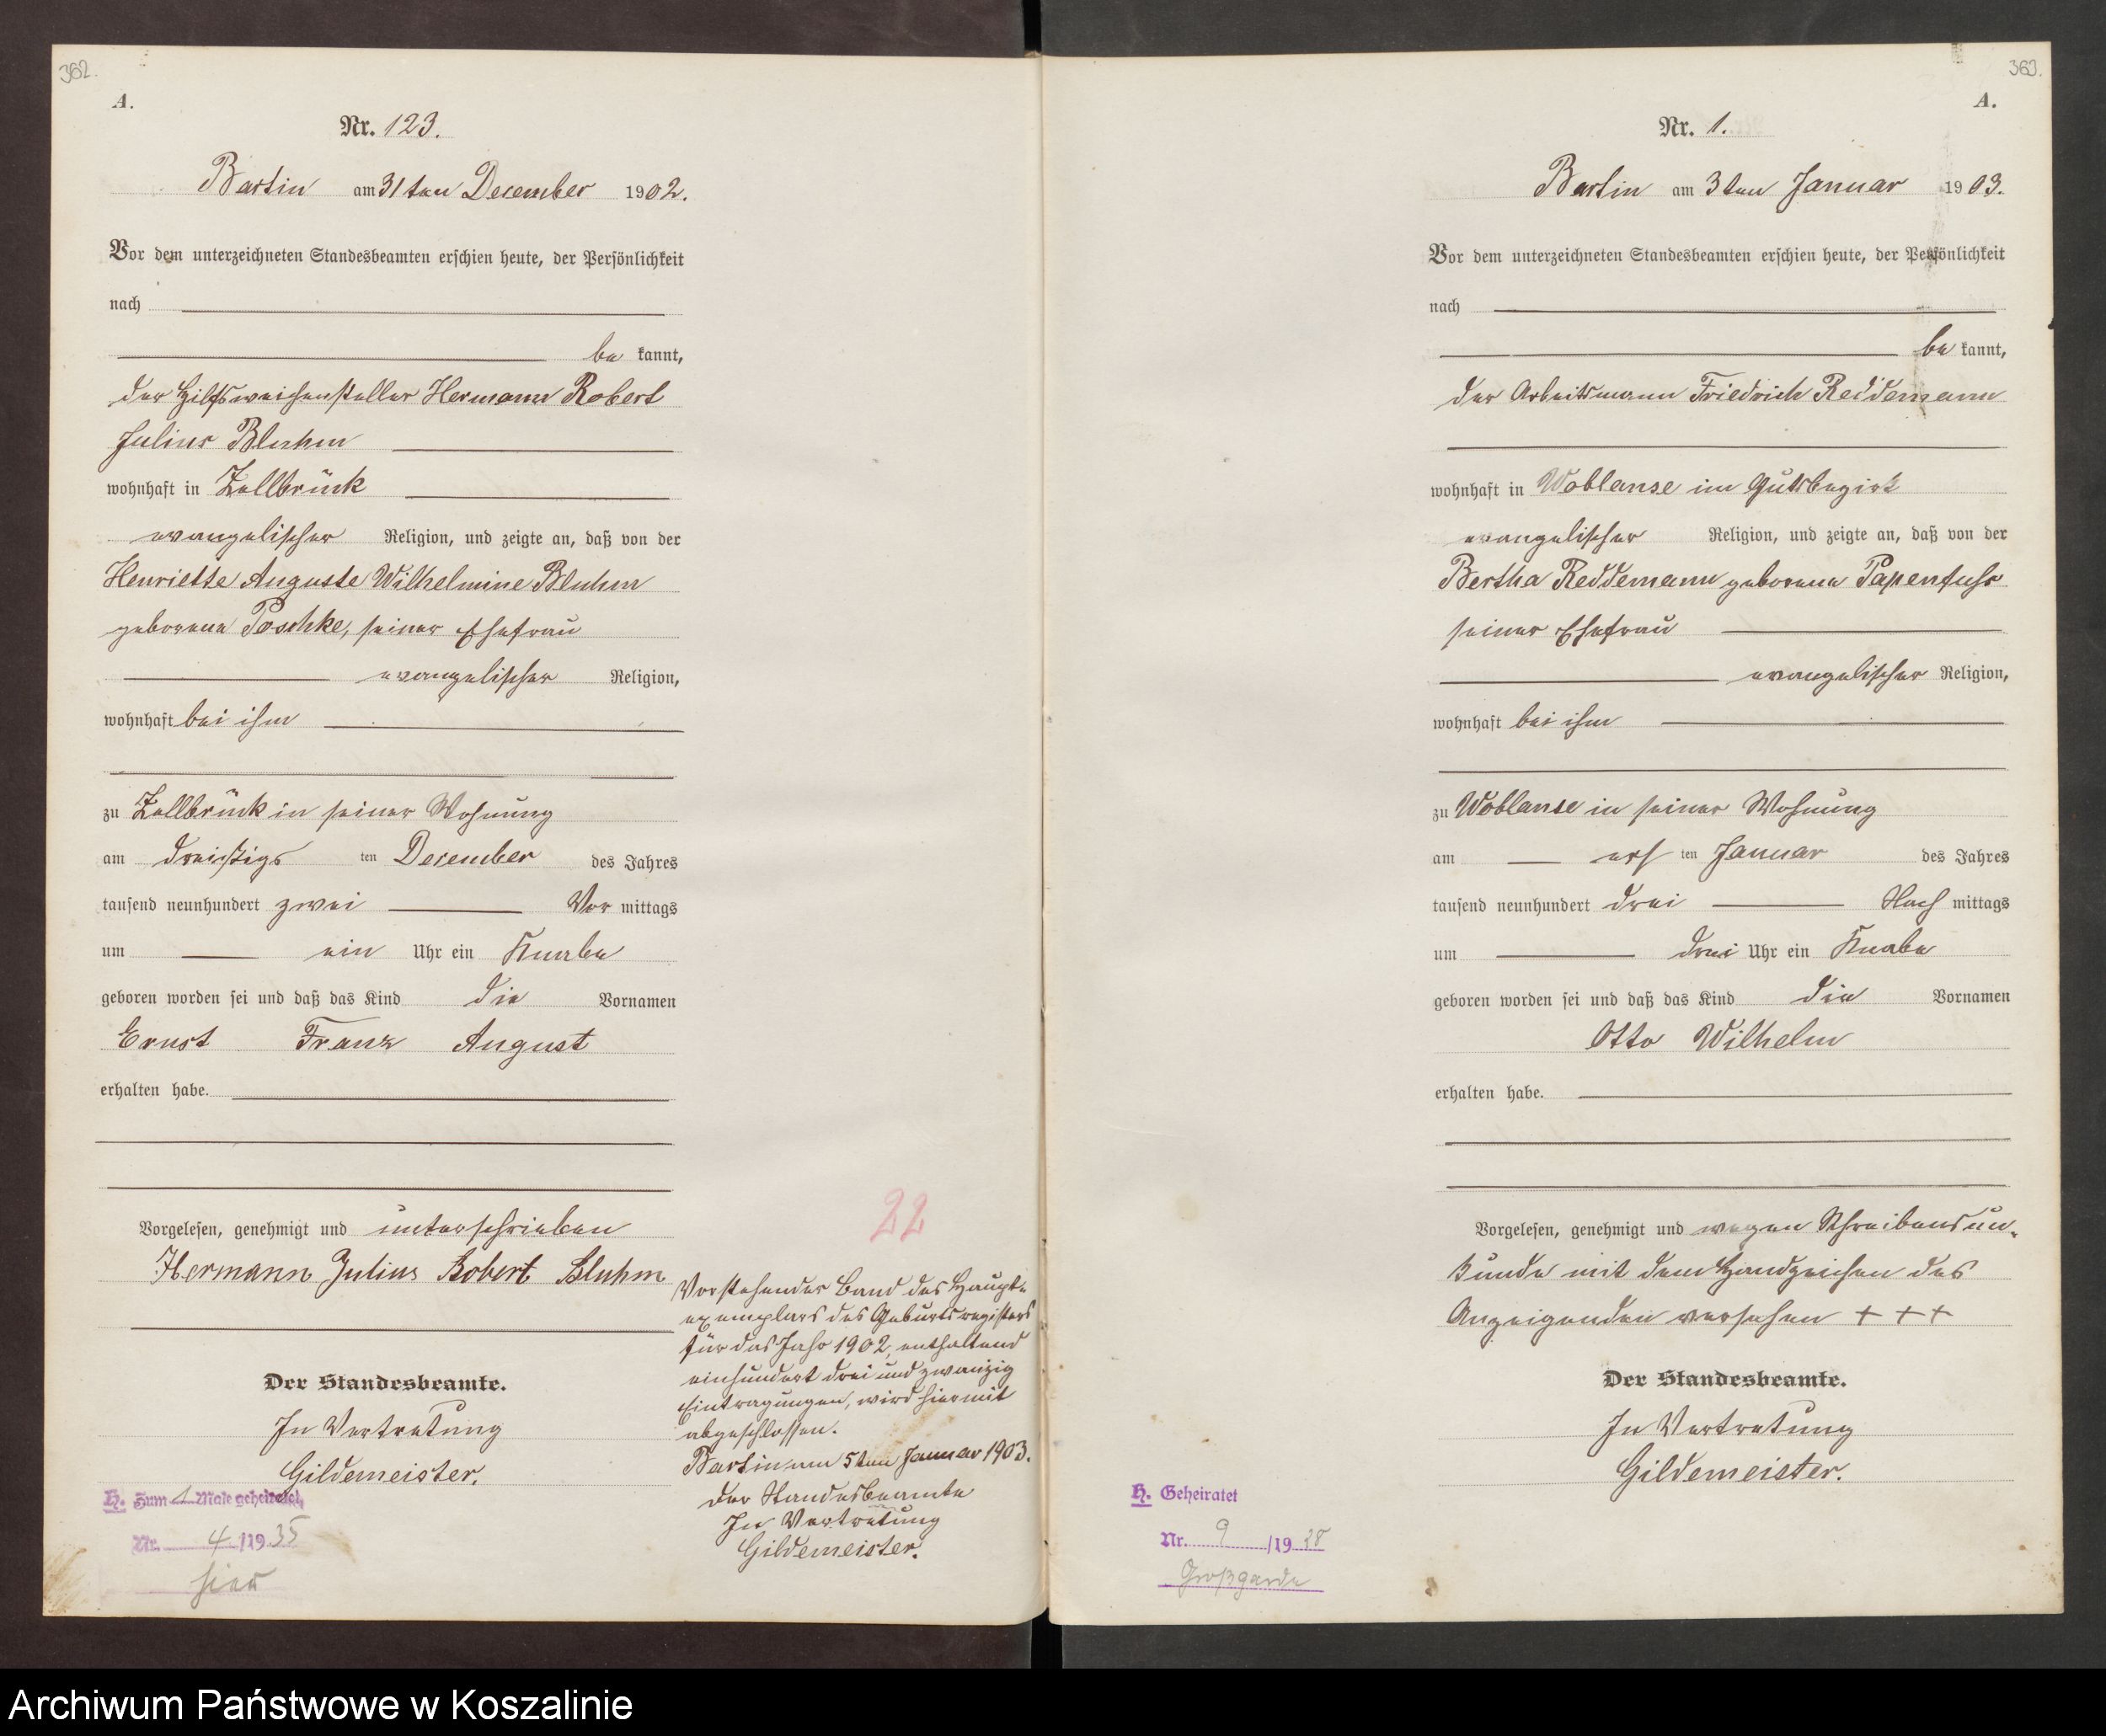 362.
A.
Nr. 123.
Bartin am 31ten December 1902.
Vor dem unterzeichneten Standesbeamten erschien heute, der Persönlichkeit
nach
be kannt,
der Hilfsweichensteller Hermann Robert
Julius Bluhm
wohnhaft in Zollbrück
evangelischer Religion, und zeigte an, daß von der
Henriette Auguste Wilhelmine Bluhm
geborene Poschke, seiner Ehefrau
evangelischer Religion,
wohnhaft bei ihm
zu Zollbrück in seiner Wohnung
am dreißigs ten December des Jahres
tausend neunhundert zwei Vor mittags
um ein Uhr ein Knabe
geboren worden sei und daß das Kind die Vornamen
Ernst Franz August
erhalten habe.
Vorgelesen, genehmigt und unterschrieben
Hermann Julius Robert Bluhm
Der Standesbeamte.
In Vertretung
Gildemeister.
H. Zum 1 Male geheiratet
Nr. 4 /19 35
hier
22
Vorstehender Band des Haupt-
exemplars des Geburtsregisters
für das Jahr 1902, enthaltend
einhundert drei und zwanzig
Eintragungen, wird hiermit
abgeschlossen.
Bartin am 5ten Januar 1903.
Der Standesbeamte
In Vertretung
Gildemeister.
363.
A.
Nr. 1.
Bartin am 3ten Januar 1903.
Vor dem unterzeichneten Standesbeamten erschien heute, der Persönlichkeit
nach
be kannt,
der Arbeitsmann Friedrich Reddemann
wohnhaft in Woblanse im Gutsbezirk
evangelischer Religion, und zeigte an, daß von der
Bertha Reddemann geborene Papenfuhs
seiner Ehefrau
evangelischer Religion,
wohnhaft bei ihm
zu Woblanse in seiner Wohnung
am ers ten Januar des Jahres
tausend neunhundert drei Nach mittags
um drei Uhr ein Knabe
geboren worden sei und daß das Kind die Vornamen
Otto Wilhelm
erhalten habe.
Vorgelesen, genehmigt und wegen Schreibensun-
kunde mit dem Handzeichen des
Anzeigenden versehen + + +
Der Standesbeamte.
In Vertretung
Gildemeister.
H. Geheiratet
Nr. 9 /19 28
Großgarde
Archiwum Państwowe w Koszalinie